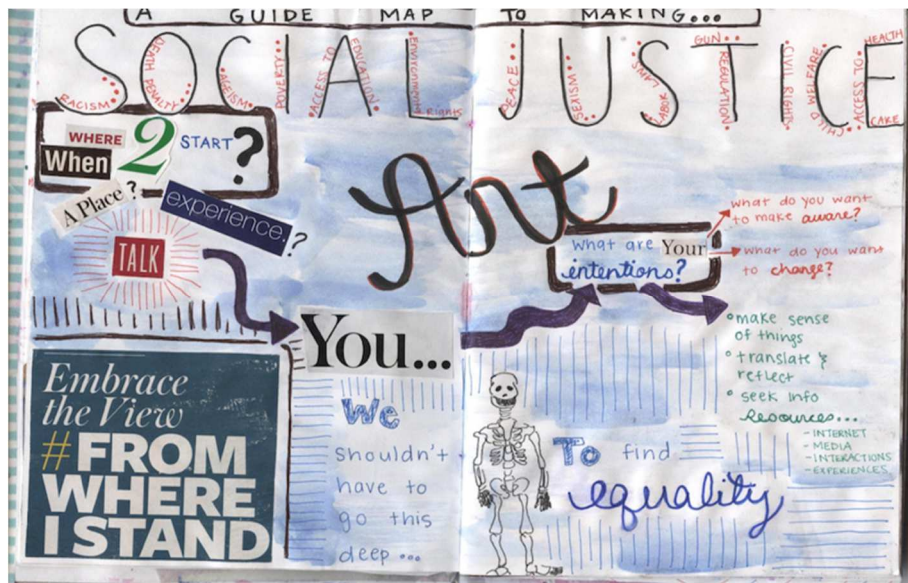 A GUIDE MAP TO MAKING...
SOCIAL JUSTICE
RACISM
DEATH PENALTY
AGEISM
POVERTY
ACCESS TO EDUCATION
Environment rights
PEACE
SEXISM
LABOR LAWS
GUN REGULATION
CIVIL RIGHTS
CHILD WELFARE
ACCESS TO HEALTH CARE
Art
WHERE
When 2 START?
A Place?
experience.?
TALK
You...
What are Your
intentions?
what do you want
to make aware?
What do you want
to change?
make sense
of things
translate &
reflect
seek info
Resources...
- INTERNET
- MEDIA
- INTERACTIONS
- EXPERIENCES
Embrace
the View
# FROM
WHERE
I STAND
We
shouldn't
have to
go this
deep...
To find
equality